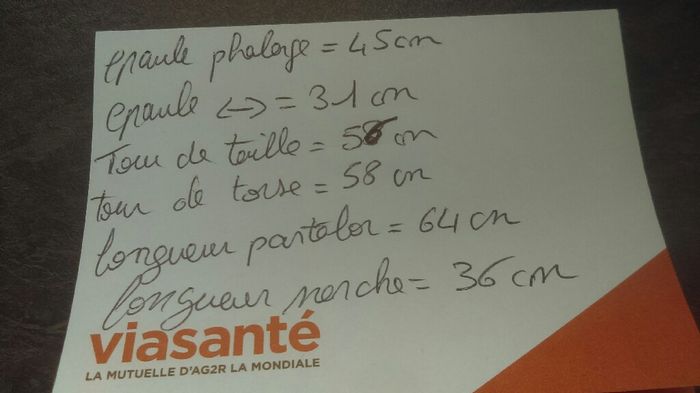 epaule phalange = 45 cm
epaule <-> = 31 cm
Tour de taille = 56 cm
tour de torse = 58 cm
longueur pantalon = 64 cm
longueur manche = 36 cm
viasanté
LA MUTUELLE D'AG2R LA MONDIALE